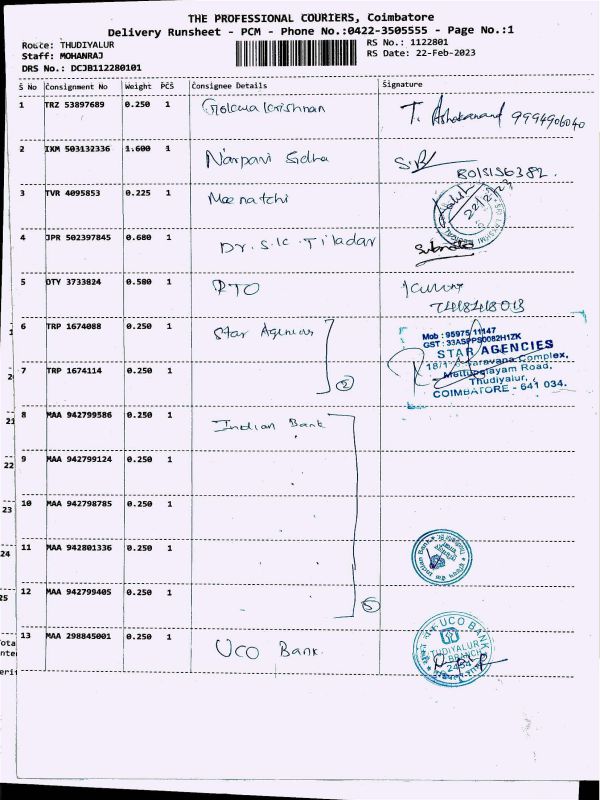 THE PROFESSIONAL COURIERS, Coimbatore
Delivery Runsheet - PCM - Phone No.:0422-3505555 - Page No.:1
Route: THUDIYALUR
RS No.: 1122801
Staff: MOHANRAJ
RS Date: 22-Feb-2023
DRS No.: DCJB112280101
S No Consignment No Weight PCS Consignee Details Signature
1 TRZ 53897689 0.250 1 9994906040
2 IXM 503132336 1.600 1 Narpavi Sidha
3 TVR 4095853 0.225 1 Meenatchi 22/2/23
4 JPR 502397845 0.680 1 Dr. S.K. Tiladar
5 OTY 3733824 0.580 1 RTO Kumar
6 TRP 1674088 0.250 1 Star Agencies
Mob : 95975 11147
GST : 33ASPPS0082H1ZK
STAR AGENCIES
Saravana Complex,
Mettupalayam Road,
Thudiyalur,
COIMBATORE - 641 034.
7 TRP 1674114 0.250 1 2
8 MAA 942799586 0.250 1 Indian Bank
9 MAA 942799124 0.250 1
10 MAA 942798785 0.250 1
11 MAA 942801336 0.250 1 Indian Bank
12 MAA 942799405 0.250 1 5
13 MAA 298845001 0.250 1 UCO Bank.
UCO BANK
THUDIYALUR
BRANCH
2
21
22
23
24
25